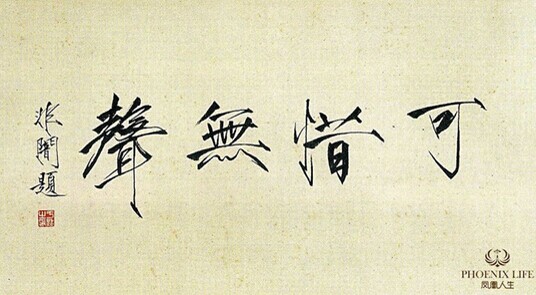 可惜無聲
非闇題
PHOENIX LIFE
凤凰人生